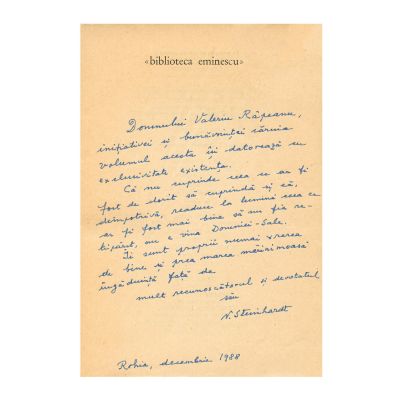 «biblioteca eminescu»
Domnului Valeriu Râpeanu,
inițiativei și bunăvoinței căruia
volumul acesta își datorează cu
exclusivitate existența.
Că nu cuprinde ceea ce ar fi
fost de dorit să cuprindă și că,
dimpotrivă, readuce la lumină ceea ce
ar fi fost mai bine să nu fie re-
tipărit, nu e vina Domniei-Sale.
Îi sunt proprii numai vrerea
de bine și prea marea mărinimoasă
îngăduință față de
mult recunoscătorul și devotatul
său
N. Steinhardt
Rohia, decembrie 1988